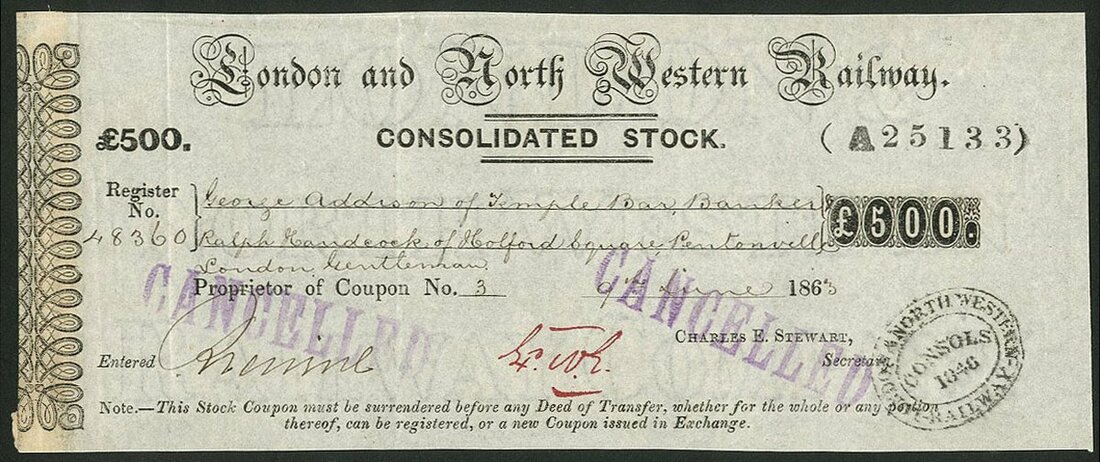 London and North Western Railway.
£500.
CONSOLIDATED STOCK.
(A25133)
Register No.
48360
George Addison of Temple Bar, Banker
Ralph Handcock of Holford Square, Pentonville
London, Gentleman
£500.
Proprietor of Coupon No. 3
9th June 1863
CANCELLED
CANCELLED
CHARLES E. STEWART,
Secretary.
Entered
LONDON & NORTH WESTERN RAILWAY
CONSOLS
1846
Note.—This Stock Coupon must be surrendered before any Deed of Transfer, whether for the whole or any portion
thereof, can be registered, or a new Coupon issued in Exchange.